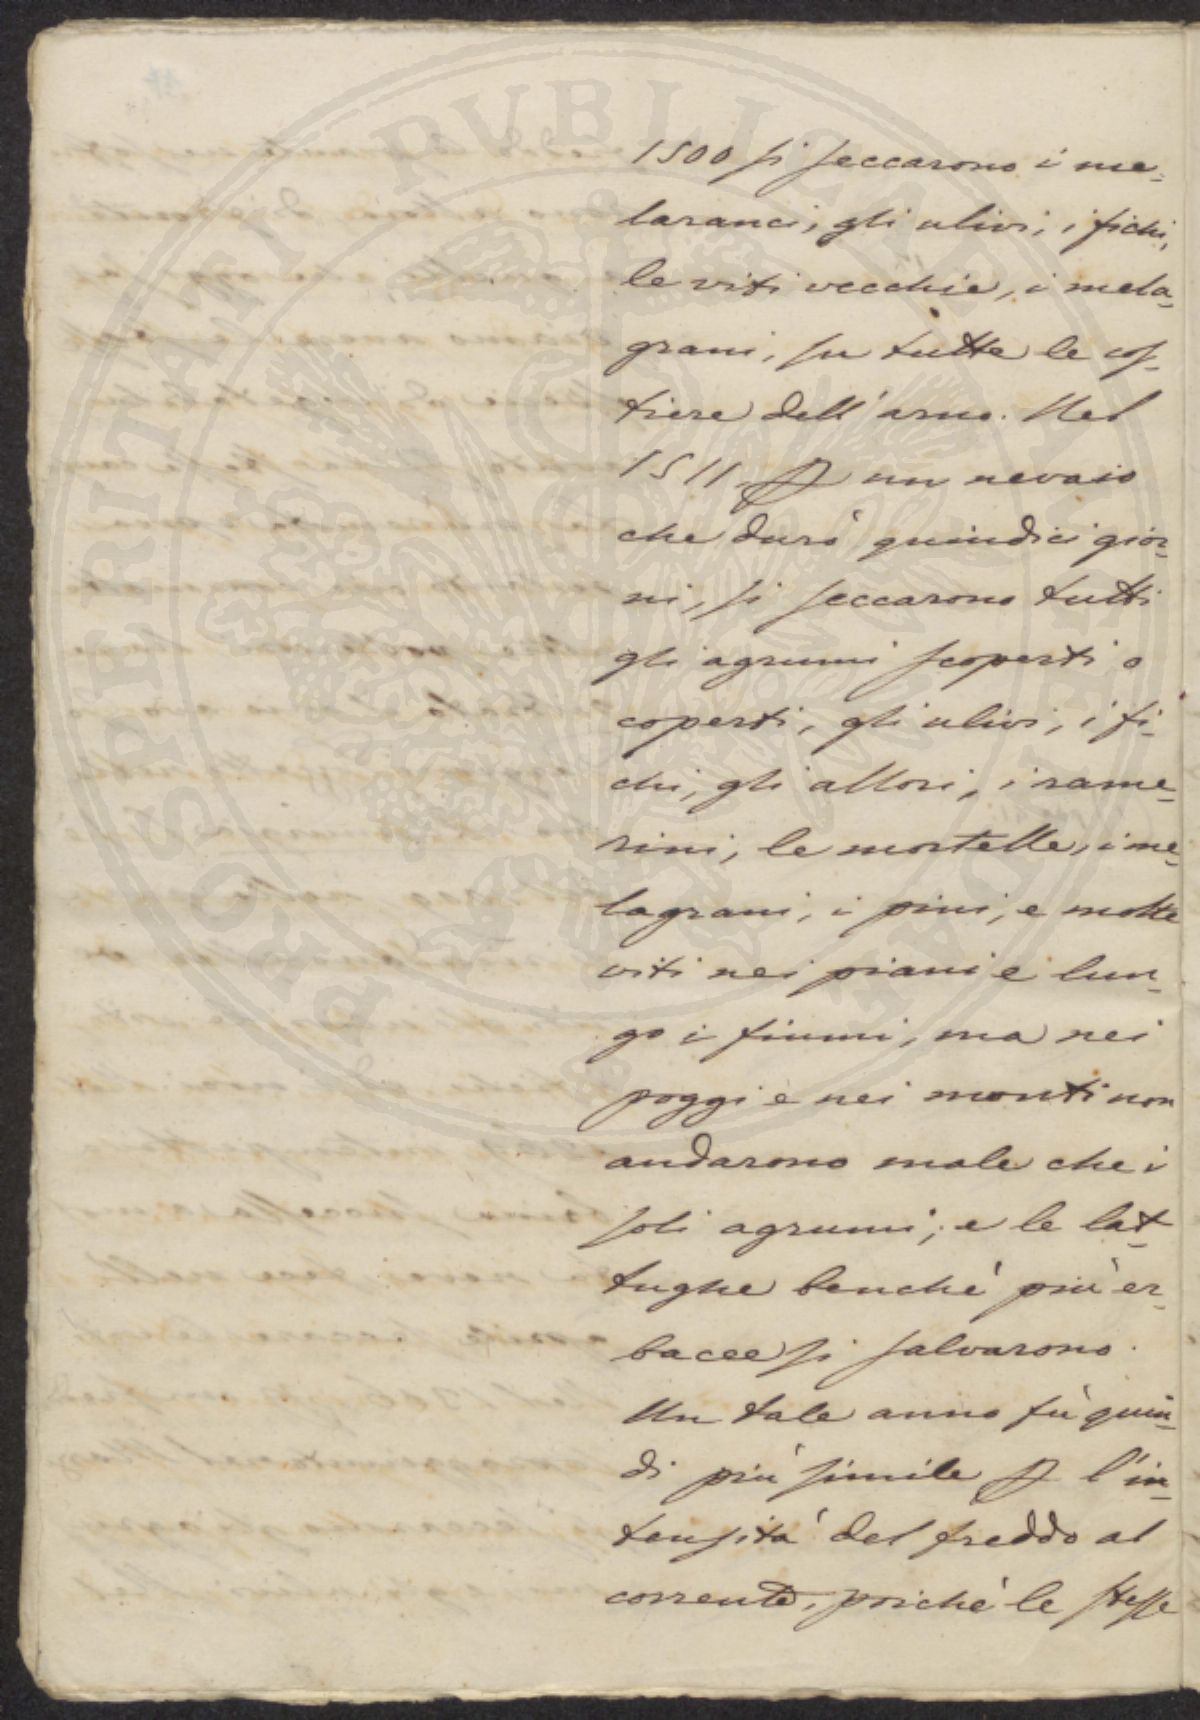 1500 si seccarono i me-
laranci, gli ulivi, i fichi,
le viti vecchie, i mela-
grani, su tutte le cos-
tiere dell'arno. Nel
1511, p un nevaio
che durò quindici gior-
ni, si seccarono tutti
gli agrumi scoperti o
coperti, gli ulivi, i fi-
chi, gli allori, i rame-
rini, le mortelle, i me-
lagrani, i pini, e molte
viti nei piani e lun-
go i fiumi, ma nei
poggi e nei monti non
andarono male che i
soli agrumi; e le lat-
tughe benché più er-
bacee si salvarono.
Un tale anno fù quin-
di più simile p l'in-
tensità del freddo al
corrente, poiché le stesse
PROSPERITATI PUBLICAE